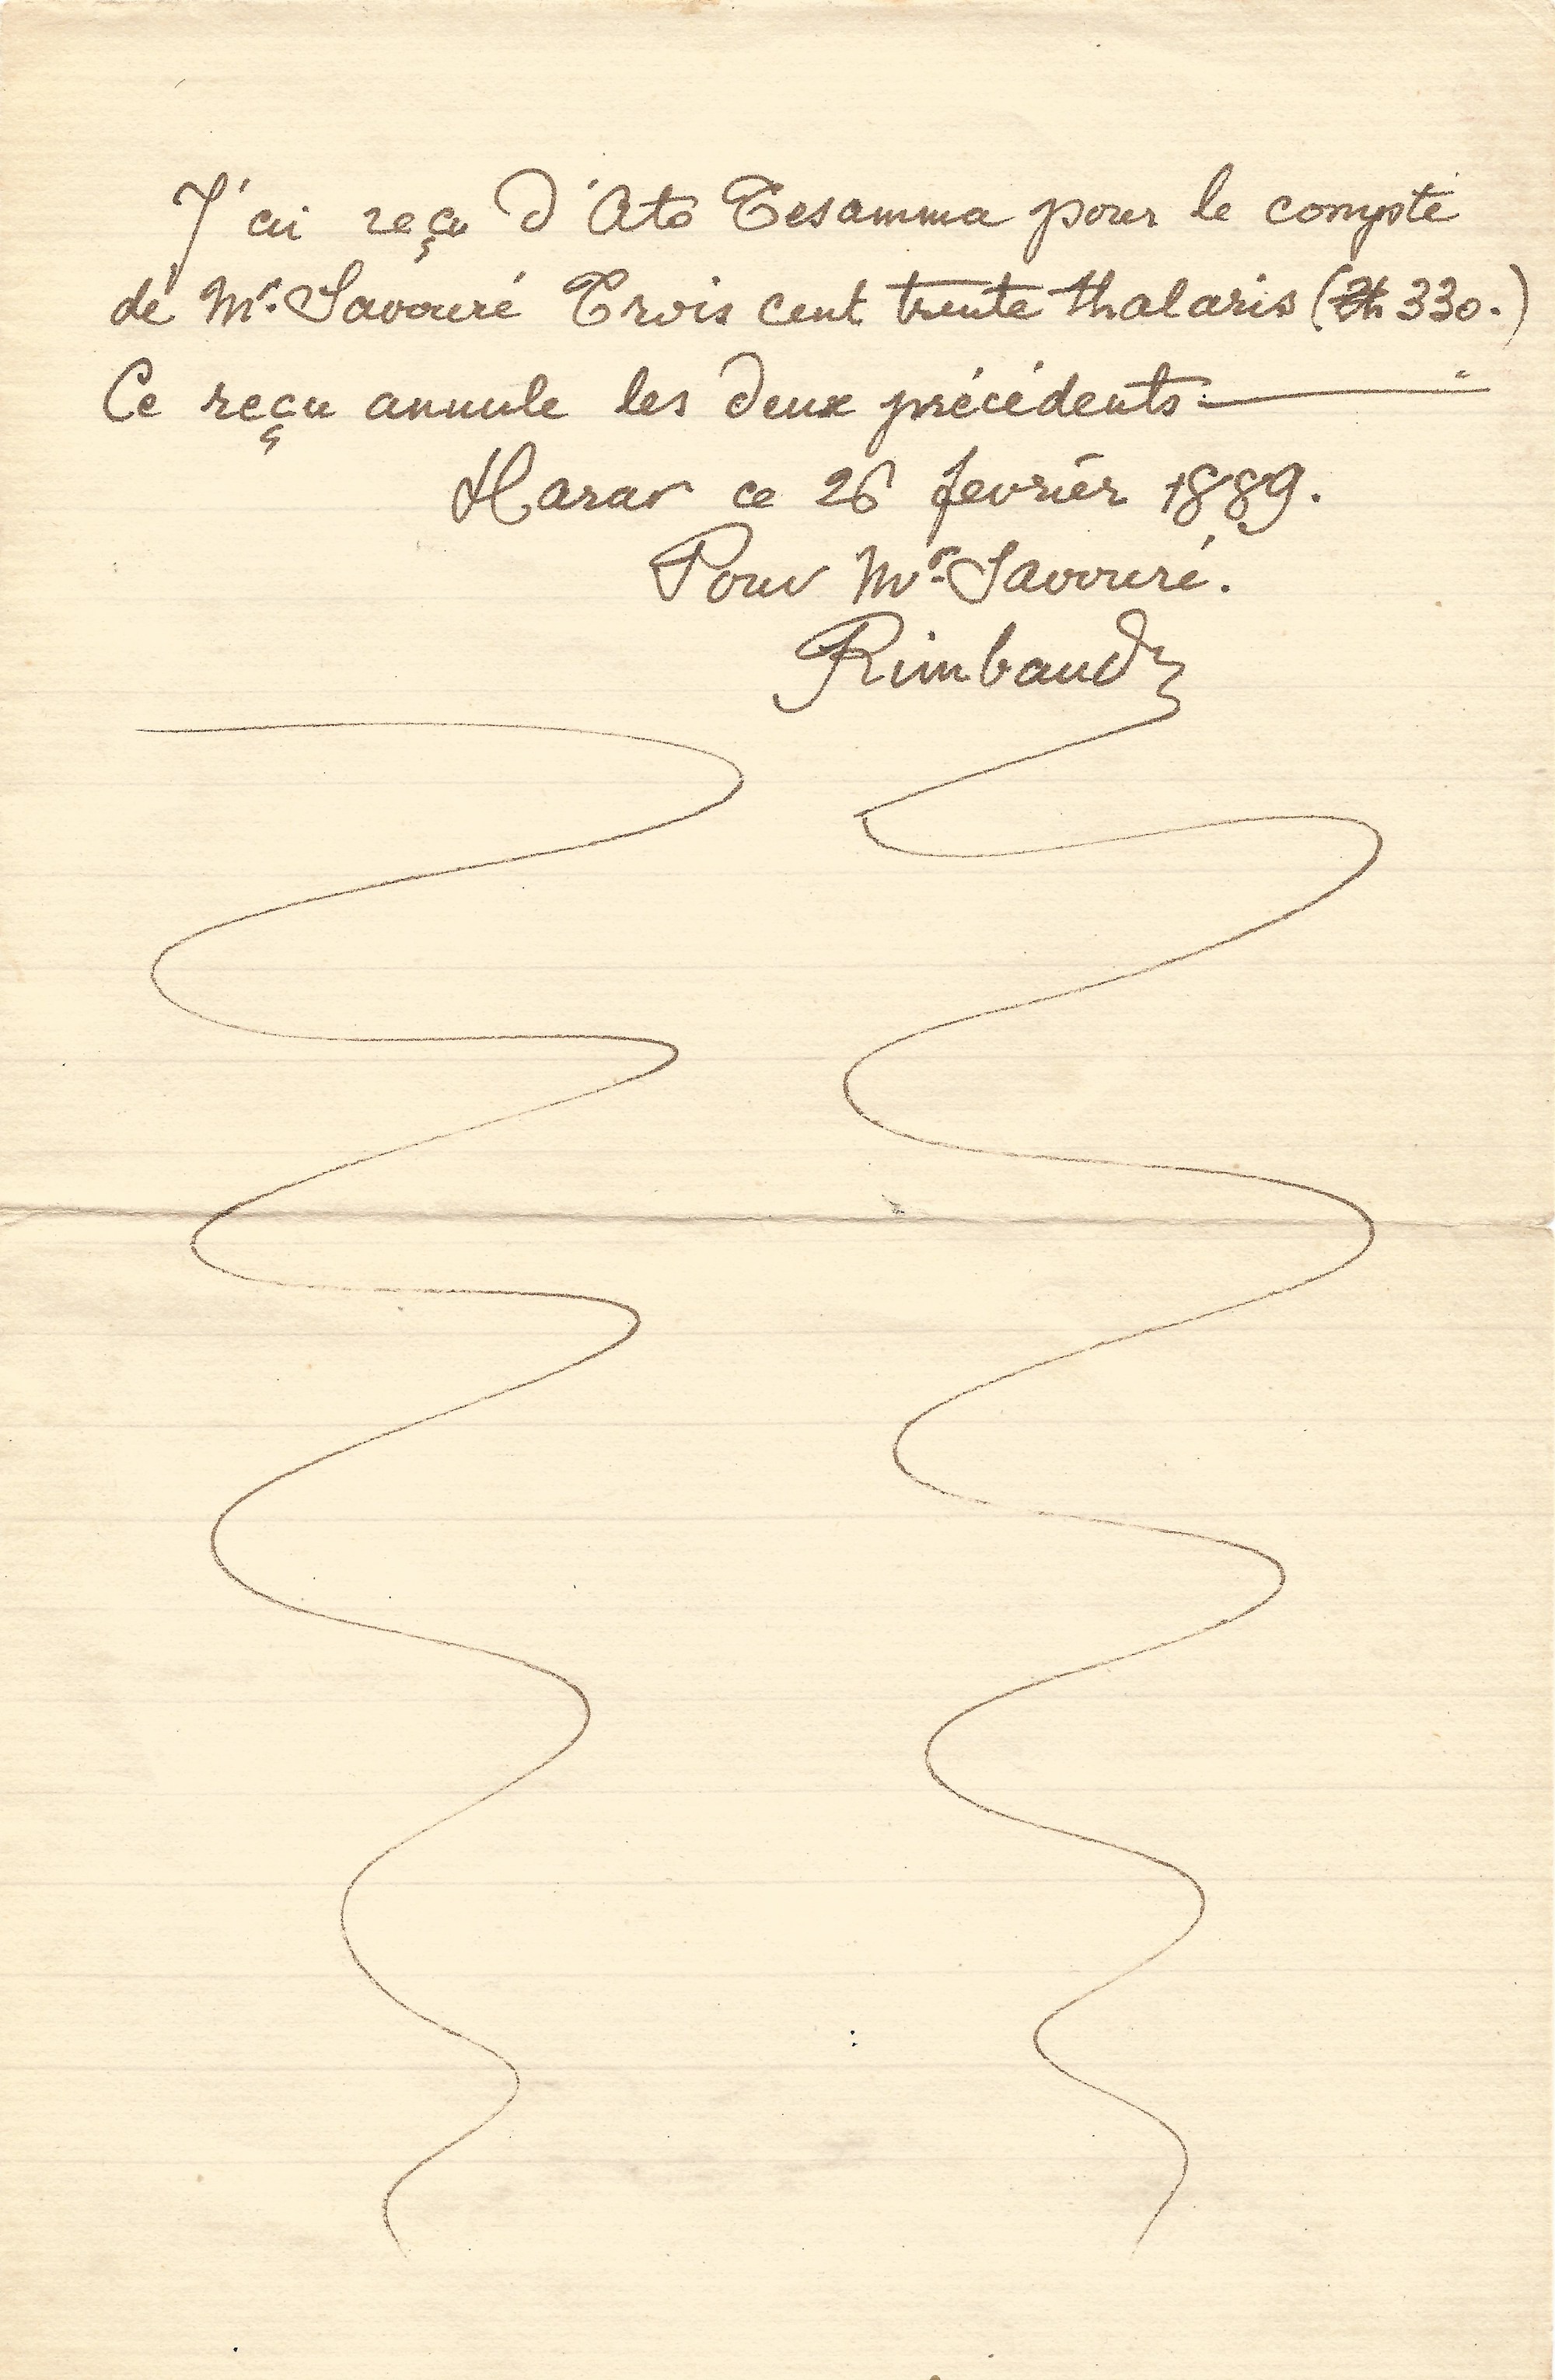 J'ai reçu d'Ato Tesamma pour le compte
de Mr. Savouré Trois cent trente thalaris (Th 330.)
Ce reçu annule les deux précédents.
Harar ce 26 fevrier 1889.
Pour Mr. Savouré.
Rimbaud